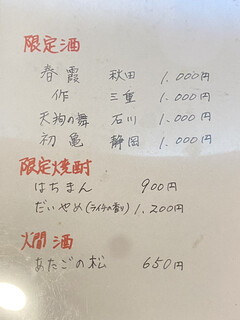 限定酒
春霞 秋田 1.000円
作 三重 1.000円
天狗の舞 石川 1.000円
初亀 静岡 1.000円
限定焼酎
はちまん 900円
だいやめ(ライチの香り) 1.200円
燗酒
あたごの松 650円